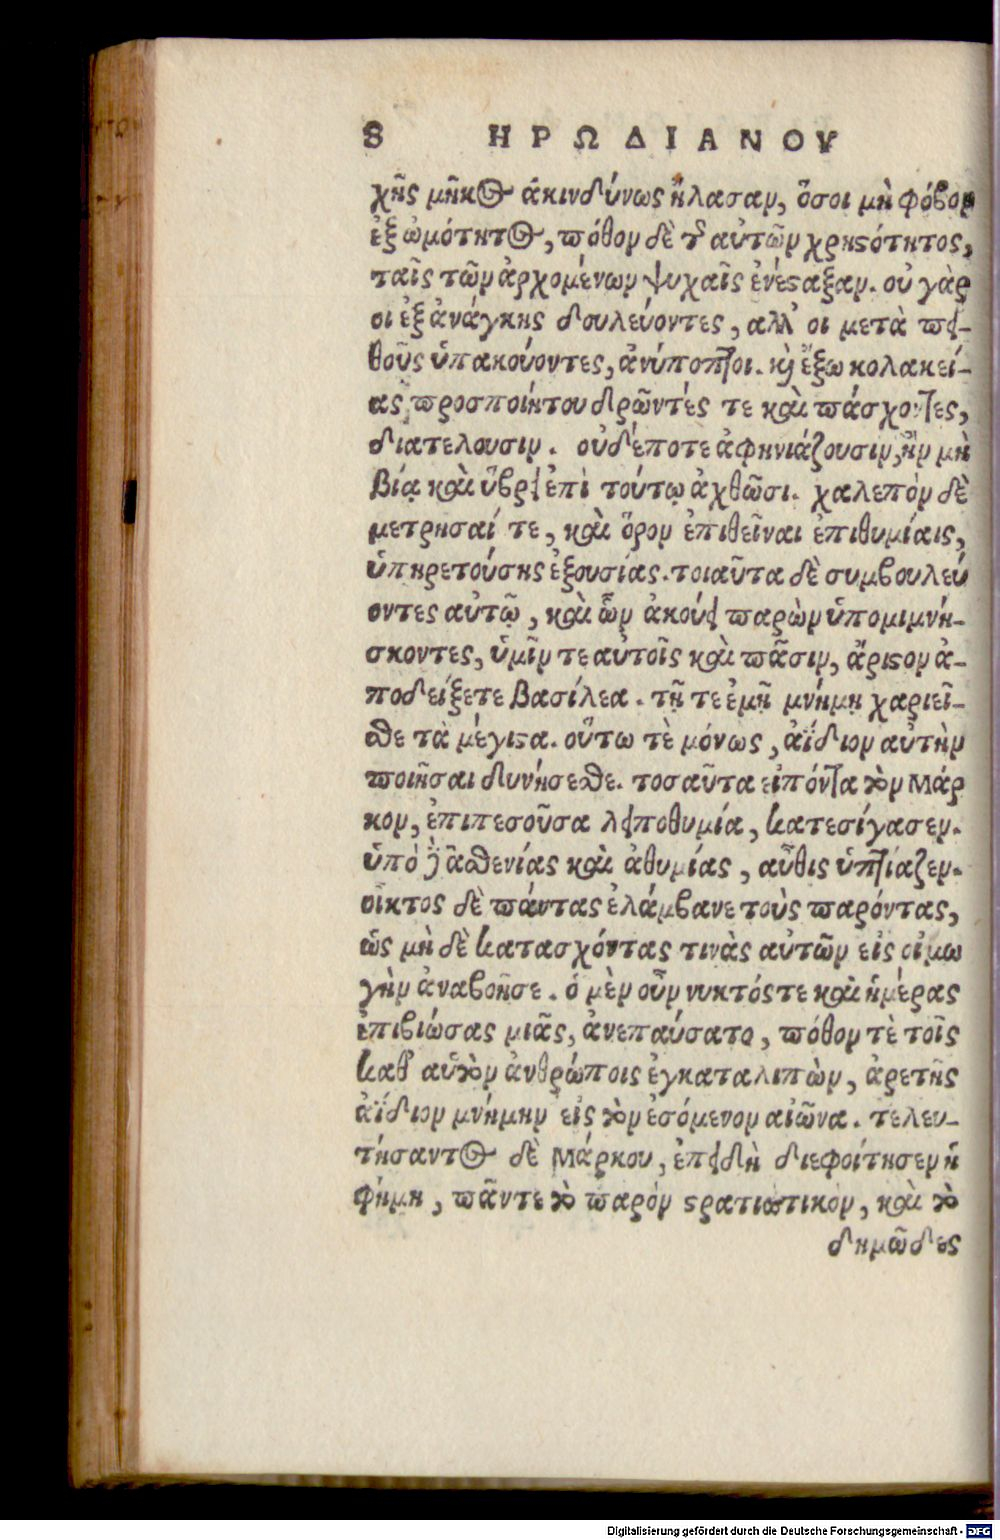 8 ΗΡΩΔΙΑΝΟΥ
χῆς μῆκος ἀκινδύνως ἤλασαν, ὅσοι μὴ φόβον
ἐξ ὠμότητος, πόθον δὲ τῆς αὐτῶν χρηστότητος,
ταῖς τῶν ἀρχομένων ψυχαῖς ἐνέσταξαν. οὐ γὰρ
οι ἐξ ἀνάγκης δουλεύοντες, αλλ᾽ οι μετὰ πει-
θοῦς ὑπακούοντες, ἀνύποπτοι. καὶ ἔξω κολακεί-
ας προσποιήτου δρῶντές τε καὶ πάσχοντες,
διατελουσιν. οὐδέποτε ἀφηνιάζουσιν, ἢν μὴ
βίᾳ καὶ ὕβρει ἐπὶ τούτῳ ἀχθῶσι. χαλεπὸν δὲ
μετρησαί τε, καὶ ὅρον ἐπιθεῖναι ἐπιθυμίαις,
ὑπηρετούσης ἐξουσίας. τοιαῦτα δὲ συμβουλεύ
οντες αὐτῷ, καὶ ὧν ἀκούει παρὼν ὑπομιμνή-
σκοντες, ὑμῖν τε αὐτοῖς καὶ πᾶσιν, ἄριστον ἀ-
ποδείξετε βασίλεα. τῇ τε ἐμῇ μνήμῃ χαριεῖ-
σθε τὰ μέγιστα. οὕτω τὲ μόνως, ἀΐδιον αὐτὴν
ποιῆσαι δυνήσεσθε. τοσαῦτα εἰπόντα τὸν Μάρ
κον, ἐπιπεσοῦσα λειποθυμία, κατεσίγασεν.
ὑπὸ δὲ ἀσθενίας καὶ ἀθυμίας, αὖθις ὑπτίαζεν.
οἶκτος δὲ πάντας ἐλάμβανε τοὺς παρόντας,
ὡς μὴ δὲ κατασχόντας τινὰς αὐτῶν εἰς οἰμω
γὴν ἀναβοῆσε. ὁ μὲν οὖν νυκτός τε καὶ ἡμέρας
ἐπιβιώσας μιᾶς, ἀνεπαύσατο, πόθον τὲ τοῖς
καθ᾽ αὑτὸν ἀνθρώποις ἐγκαταλιπὼν, ἀρετῆς
ἀΐδιον μνήμην εἰς τὸν ἐσόμενον αἰῶνα. τελευ-
τήσαντος δὲ Μάρκου, ἐπειδὴ διεφοίτησεν ἡ
φήμη, πᾶν τε τὸ παρὸν στρατιωτικὸν, καὶ τὸ
δημῶδες
Digitalisierung gefördert durch die Deutsche Forschungsgemeinschaft - DFG